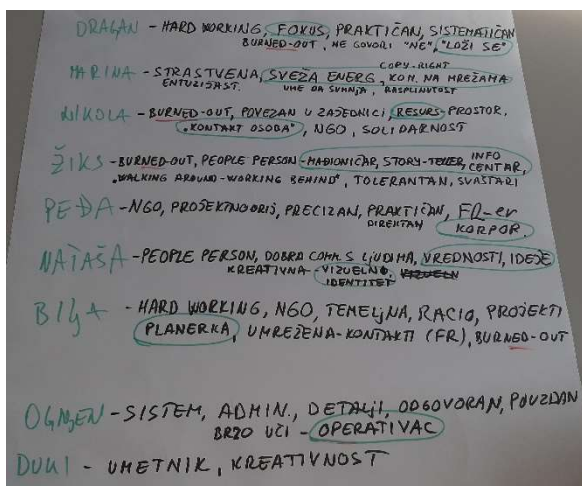 DRAGAN - HARD WORKING, FOKUS, PRAKTIČAN, SISTEMATIČAN
BURNED-OUT, NE GOVORI "NE", "LOŽI SE"
COPY-RIGHT
MARINA - STRASTVENA, SVEŽA ENERG, KOM. NA MREŽAMA
ENTUZIJAST. UME DA SUMNJA, RASPLINUTOST
NIKOLA - BURNED-OUT, POVEZAN U ZAJEDNICI, RESURS-PROSTOR,
"KONTAKT OSOBA", NGO, SOLIDARNOST
ŽIKS - BURNED-OUT, PEOPLE PERSON - MAĐIONIČAR, STORY-TELER, INFO
CENTAR,
"WALKING AROUND-WORKING BEHIND", TOLERANTAN, SVAŠTARI
PEĐA - NGO, PROJEKTNO, PRECIZAN, PRAKTIČAN, FR-er
DIREKTAN KORPOR.
NATAŠA - PEOPLE PERSON, DOBRA COMM. S LJUDIMA, VREDNOSTI, IDEJE
KREATIVNA - VIZUELNO
IDENTITET
BILJA - HARD WORKING, NGO, TEMELJNA, RACIO, PROJEKTI
PLANERKA, UMREŽENA-KONTAKTI (FR), BURNED-OUT
OGNJEN - SISTEM, ADMIN., DETALJI, ODGOVORAN, POUZDAN
BRZO UČI - OPERATIVAC
DUKI - UMETNIK, KREATIVNOST